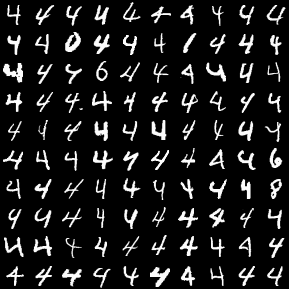 4 4 4 4 4 4 4 4 4 4
4 4 0 4 4 4 1 4 4 4
4 4 4 6 4 4 4 4 4 4
4 4 4 4 4 4 4 4 4 4
4 4 4 4 4 4 4 4 4 4
4 4 4 4 7 4 4 4 4 6
4 4 4 4 4 4 4 4 4 8
4 4 4 4 4 4 4 4 4 4
4 4 4 4 4 4 4 4 4 4
4 4 4 4 4 4 4 4 4 4